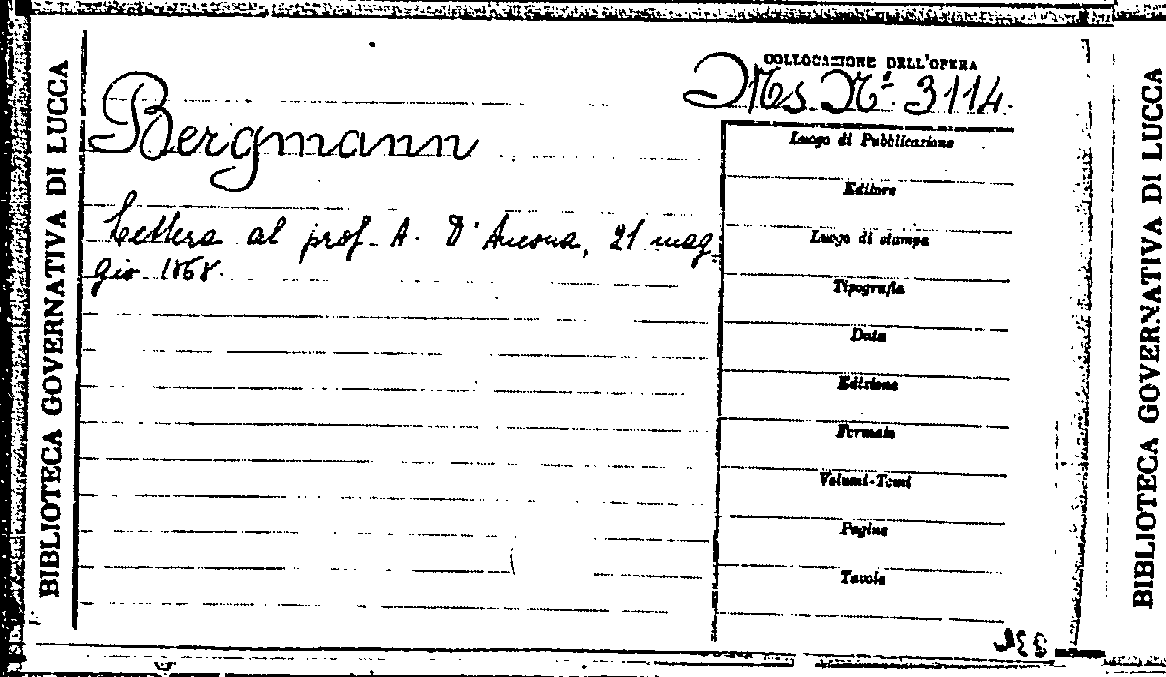 BIBLIOTECA GOVERNATIVA DI LUCCA
COLLOCAZIONE DELL'OPERA
Ms. Nº 3114.
Bergmann
Lettera al prof. A. D'Ancona, 21 mag-
gio 1868.
Luogo di Pubblicazione
Editore
Luogo di stampa
Tipografia
Data
Edizione
Formato
Volumi-Tomi
Pagine
Tavole
BIBLIOTECA GOVERNATIVA DI LUCCA